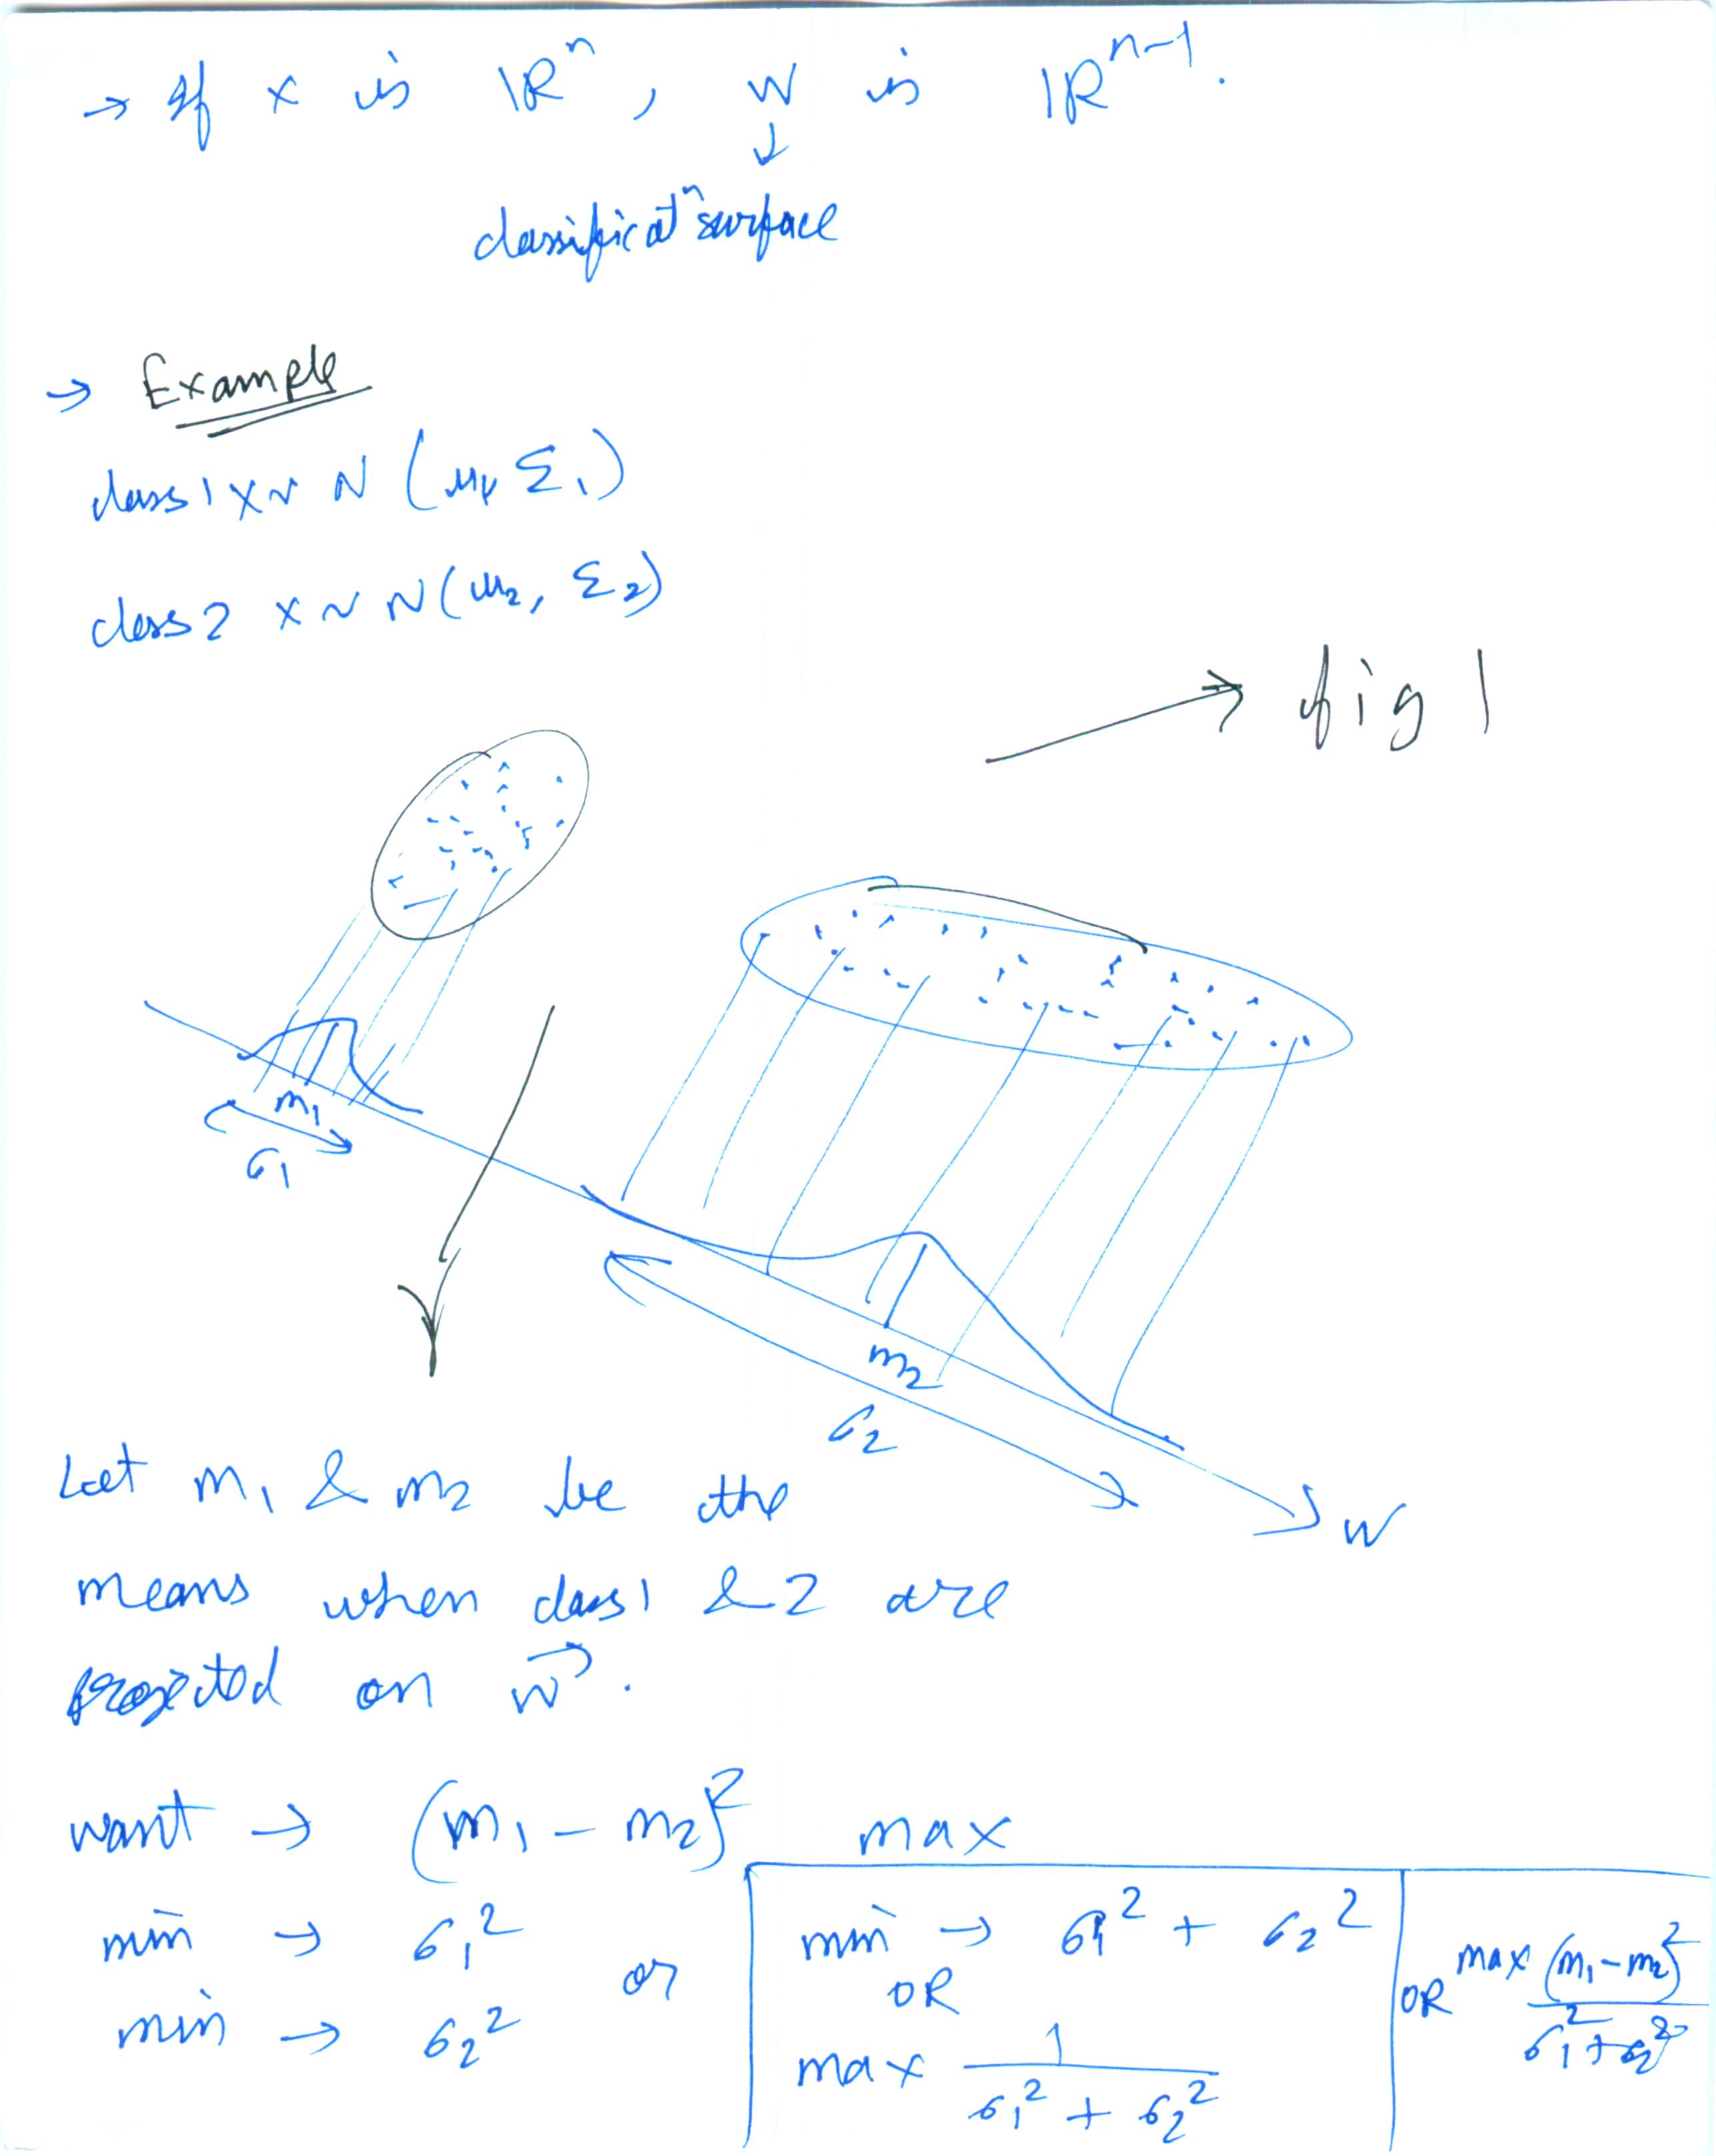 → If x is ℝⁿ, W is ℝⁿ⁻¹.
↓
classificatⁿ surface
→ Example
class 1 x ~ N (μ₁, Σ₁)
class 2 x ~ N (μ₂, Σ₂)
→ fig 1
m₁
σ₁
m₂
σ₂
W
Let m₁ & m₂ be the
means when class 1 & 2 are
projected on w⃗.
want → (m₁ - m₂)² max
min → σ₁² or min → σ₁² + σ₂²
OR
min → σ₂² max 1/(σ₁² + σ₂²)
OR max (m₁ - m₂)²/(σ₁² + σ₂²)